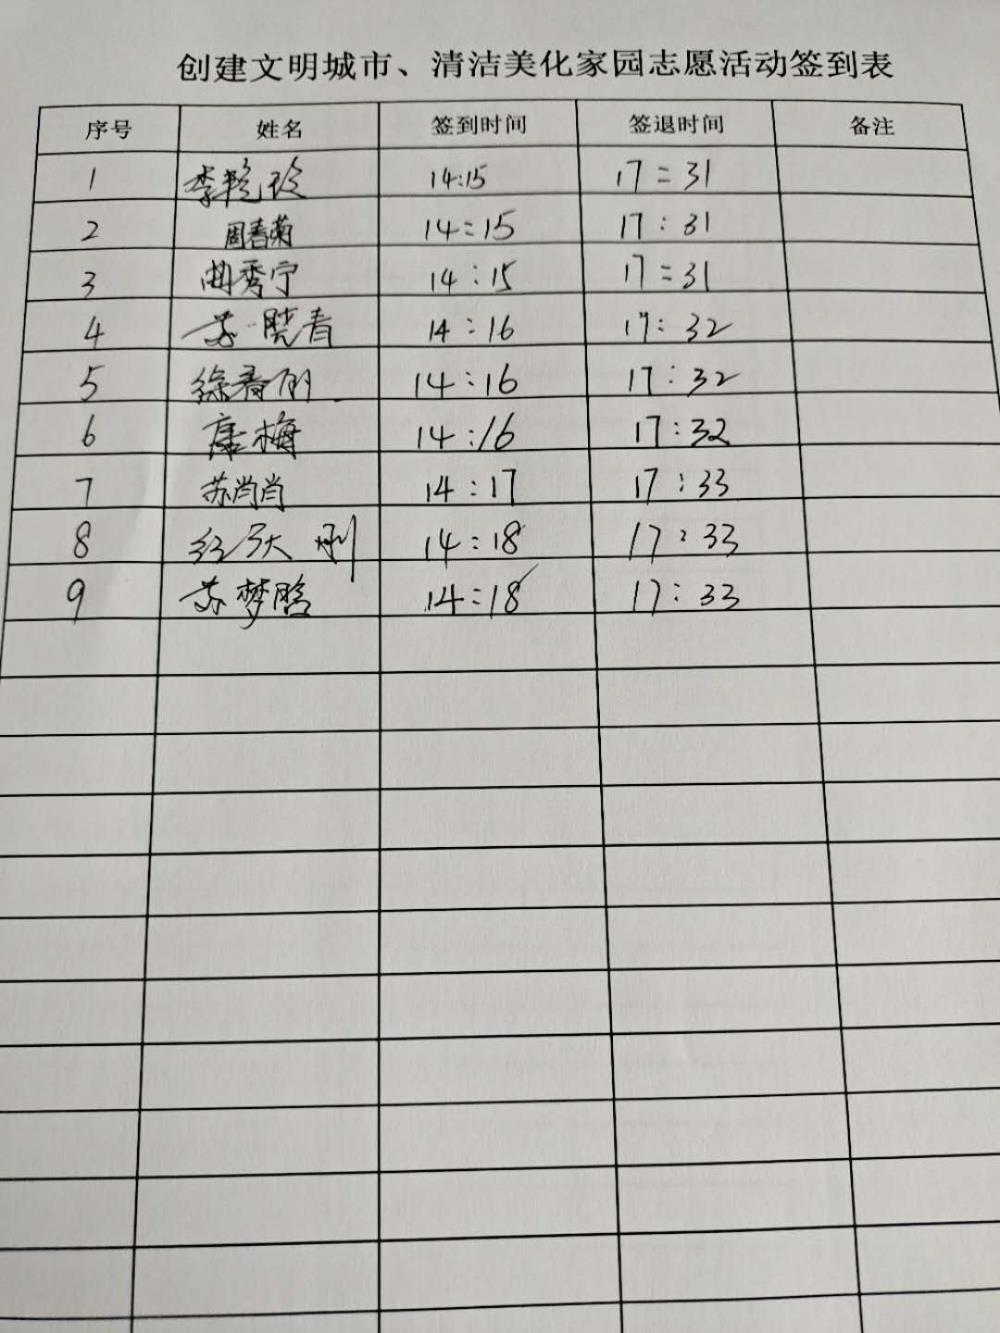 创建文明城市、清洁美化家园志愿活动签到表
序号 姓名 签到时间 签退时间 备注
1 李艳玲 14:15 17:31
2 周春菊 14:15 17:31
3 曲秀宁 14:15 17:31
4 苏晓青 14:16 17:32
5 徐春 14:16 17:32
6 唐梅 14:16 17:32
7 苏肖肖 14:17 17:33
8 14:18 17:33
9 苏梦晗 14:18 17:33